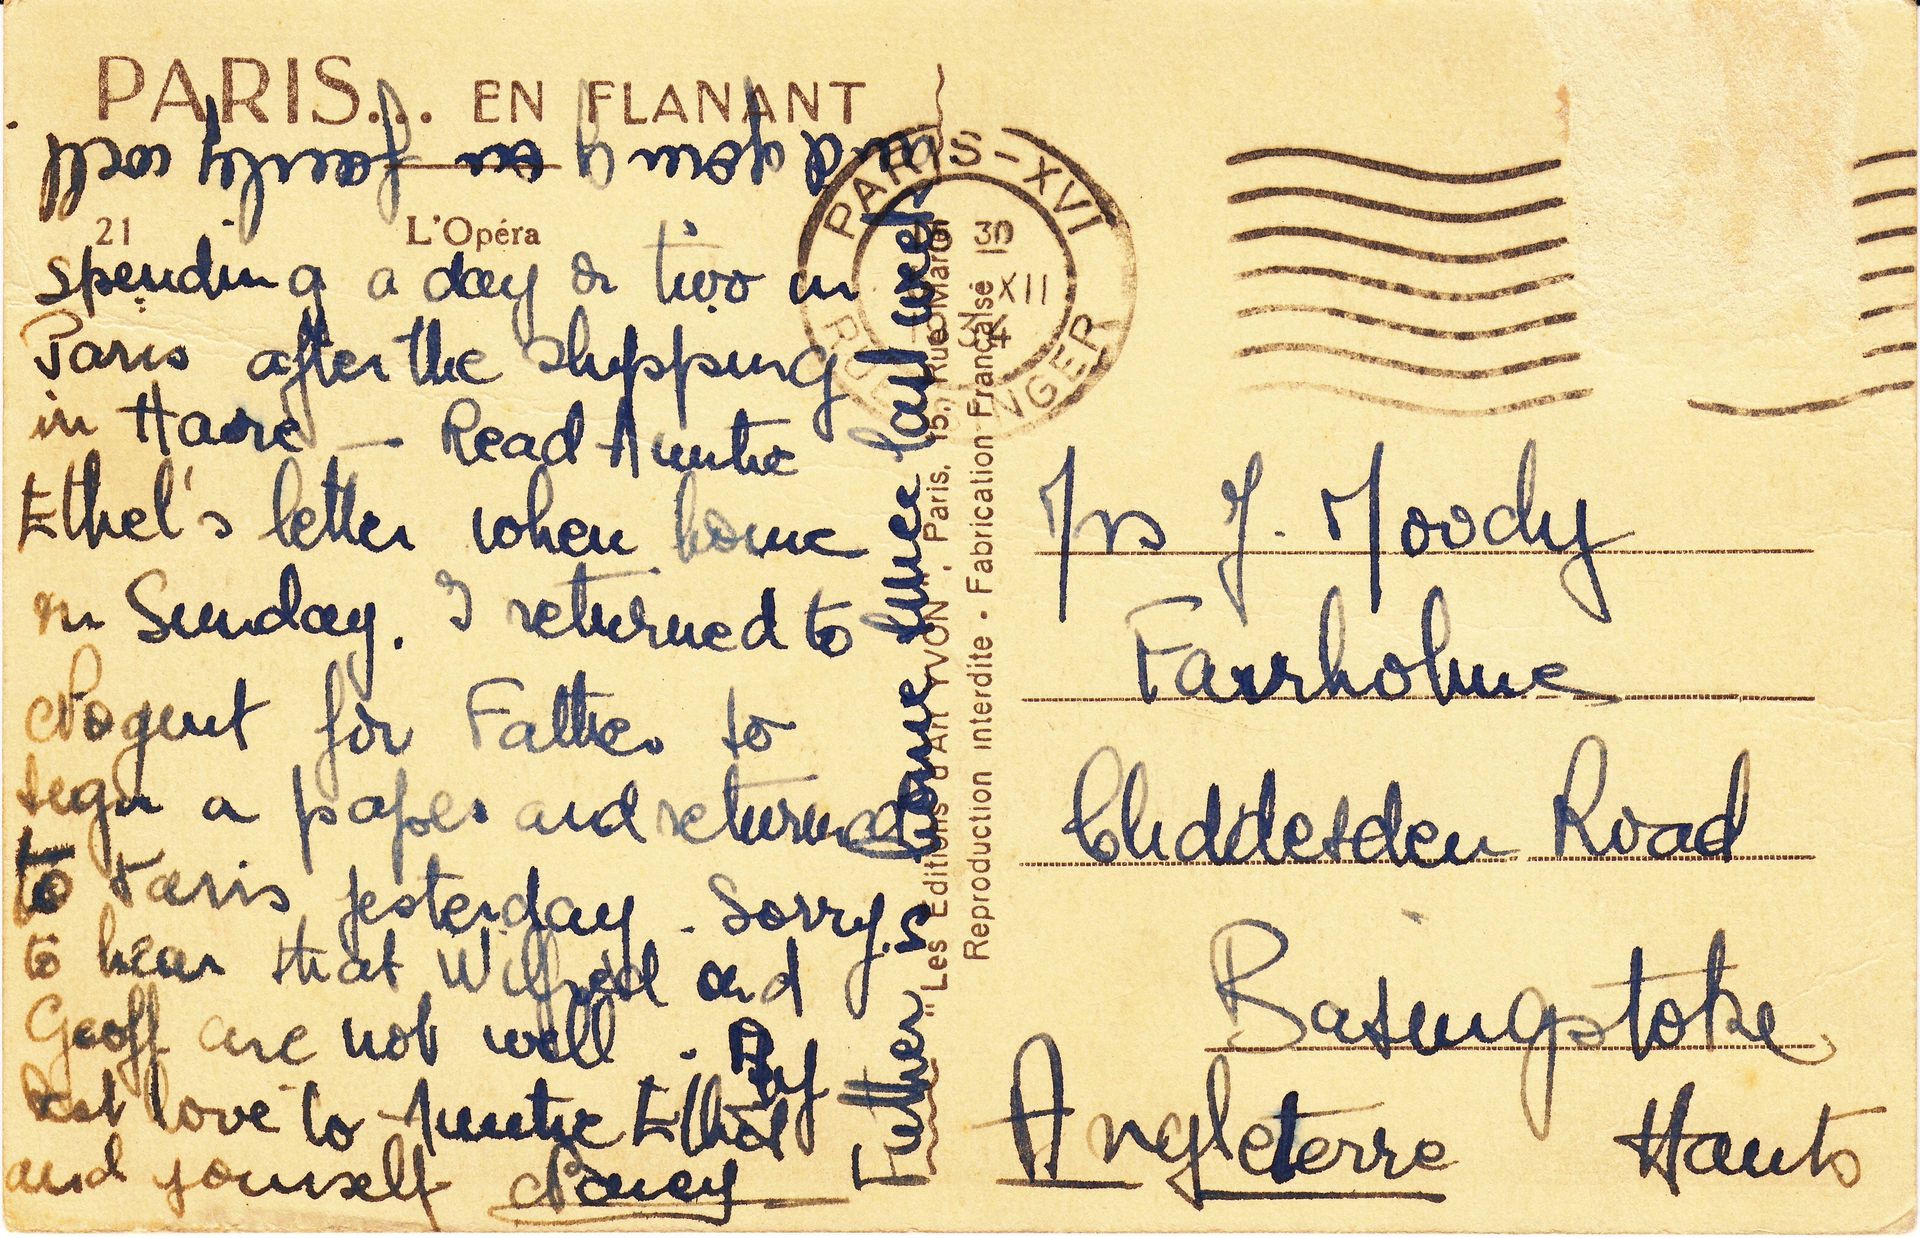 PARIS... EN FLANANT
21 L'Opéra
spending a day or two in
Paris after the shipping
in Havre — Read Auntie
Ethel's letter when home
on Sunday. I returned to
Nogent for Father to
sign a paper and returned
to Paris yesterday. Sorry
to hear that Wilfred and
Geoff are not well. My
Best love to Auntie Ethel
and yourself Nancy
Father's home since last week
and going on fairly well
"Les Editions d'Art YVON", Paris, 15, Rue Martel
Reproduction interdite • Fabrication Française
PARIS-XVI
30
XII
Mrs J. Moody
Fairholme
Cliddesden Road
Basingstoke
Angleterre Hants